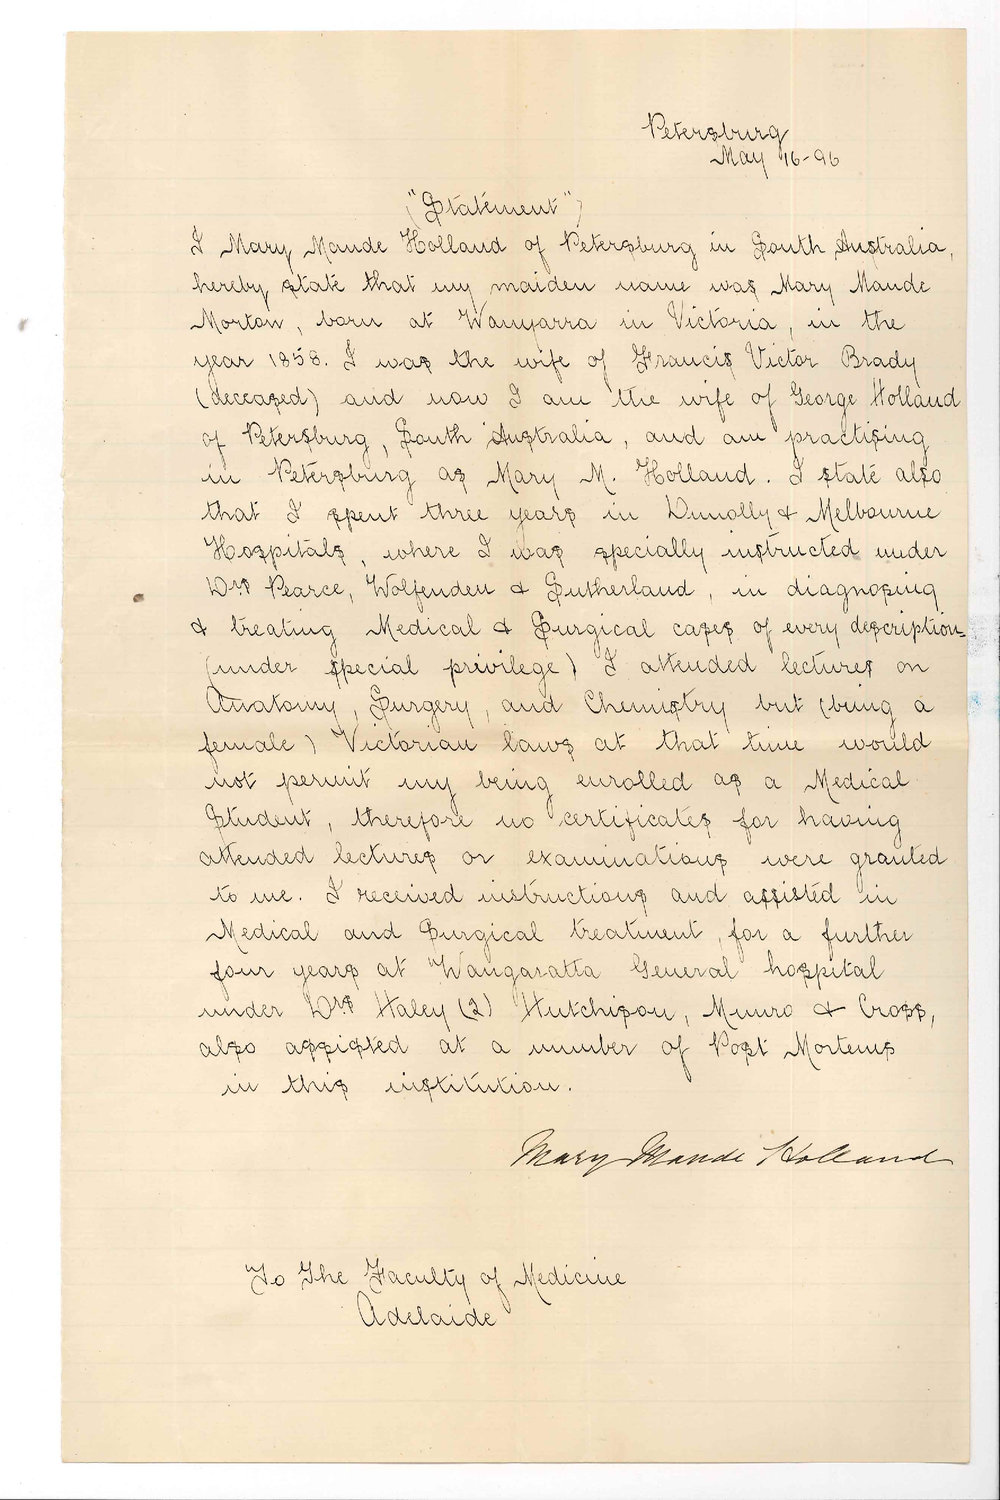 Petersburg
May 16-96
("Statement")
I Mary Maude Holland of Petersburg in South Australia,
hereby state that my maiden name was Mary Maude
Morton, born at Wanyarra in Victoria, in the
year 1858. I was the wife of Francis Victor Brady
(deceased) and now I am the wife of George Holland
of Petersburg, South Australia, and am practising
in Petersburg as Mary M. Holland. I state also
that I spent three years in Dunolly & Melbourne
Hospitals, where I was specially instructed under
Drs Pearce, Wolfenden & Sutherland, in diagnosing
& treating Medical & Surgical cases of every description
(under special privilege) I attended lectures on
Anatomy, Surgery, and Chemistry but (being a
female) Victorian laws at that time would
not permit my being enrolled as a Medical
Student, therefore no certificates for having
attended lectures or examinations were granted
to me. I received instructions and assisted in
Medical and Surgical treatment, for a further
four years at Wangaratta General hospital
under Drs Haley (2) Hutchison, Munro & Cross,
also assisted at a number of Post Mortems
in this institution.
Mary Maude Holland
To The Faculty of Medicine
Adelaide